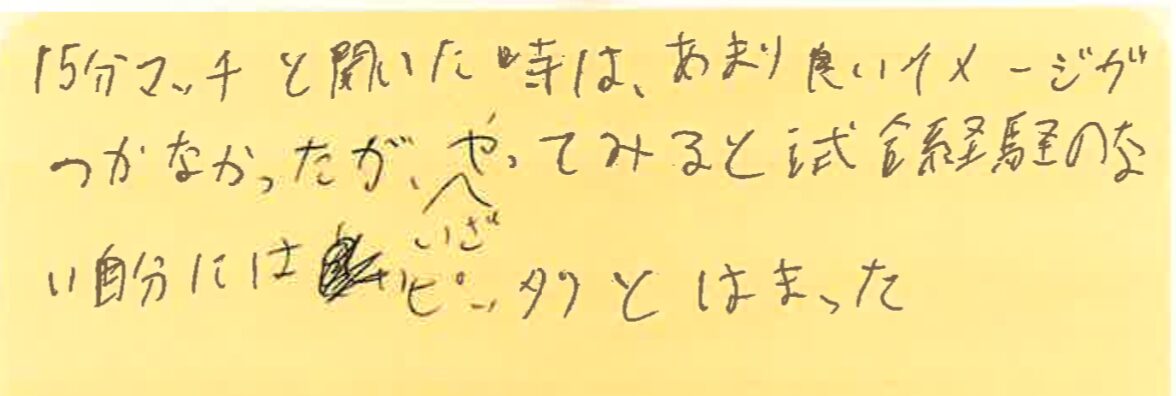 15分マッチと聞いた時は、あまり良いイメージが
つかなかったが、いざやってみると試合経験のな
い自分にはピッタリとはまった